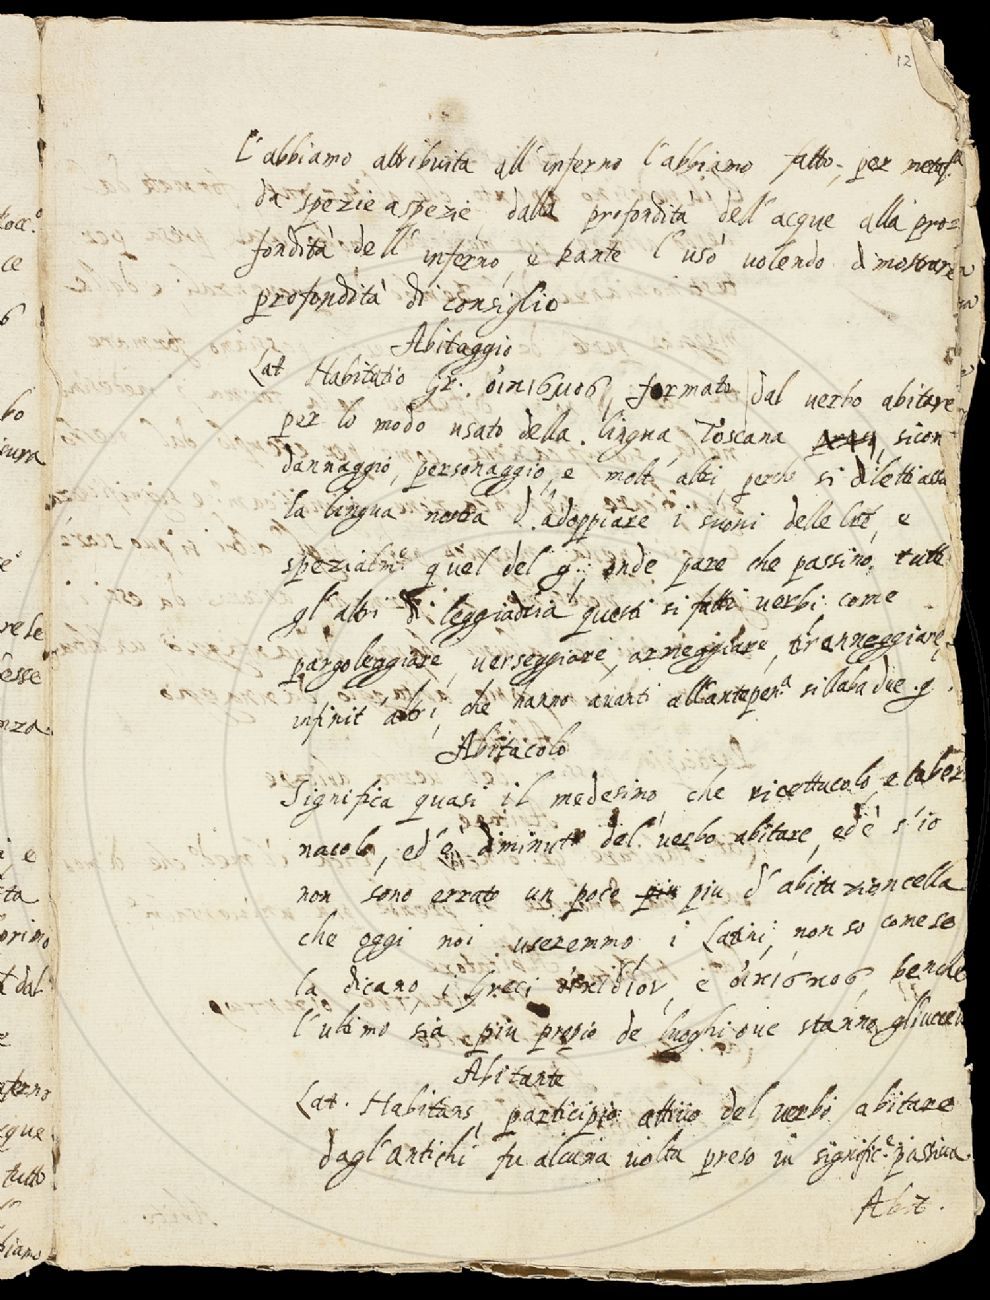 12
L'abbiamo attribuita all'inferno l'abbiamo fatto, per metaf.ª
da spezie a spezie dalla profondità dell'acque alla pro=
fondità dell'inferno, e Dante l'usò volendo dimostrare
profondità di consiglio
Abitaggio
Lat Habitatio Gr. οἰκισμός, formato dal verbo abitare
per lo modo usato della lingua Toscana, sicon
dannaggio, personaggio, e molt'altri, perche si diletti assai
la lingua nostra d'adoppiare i suoni delle lre, e
spezialm.e quel del g: onde pare che passino, tutti
gl'altri di leggiadria questi si fatti verbi come
pargoleggiare, verseggiare, armeggiare, treanneggiare, e
infinit'altri, che hanno avanti all'antepen.ª sillaba due .g.
Abitacolo
Significa quasi il medesimo che ricettacolo, e taber
nacolo, ed è diminut.º del verbo abitare, ed è s'io
non sono errato un poco più d'abitazioncella
che oggi noi useremmo, i Latini, non so come se
la dicano, i Greci οἰκίδιον, e οἰκισμός, benche
l'ultimo sia più propio de luoghi ove stanno gli uccelli
Abitante
Lat. Habitans, participio attivo del verbo abitare
dagl'antichi fu alcuna volta preso in signific.e passiva.
Abit.